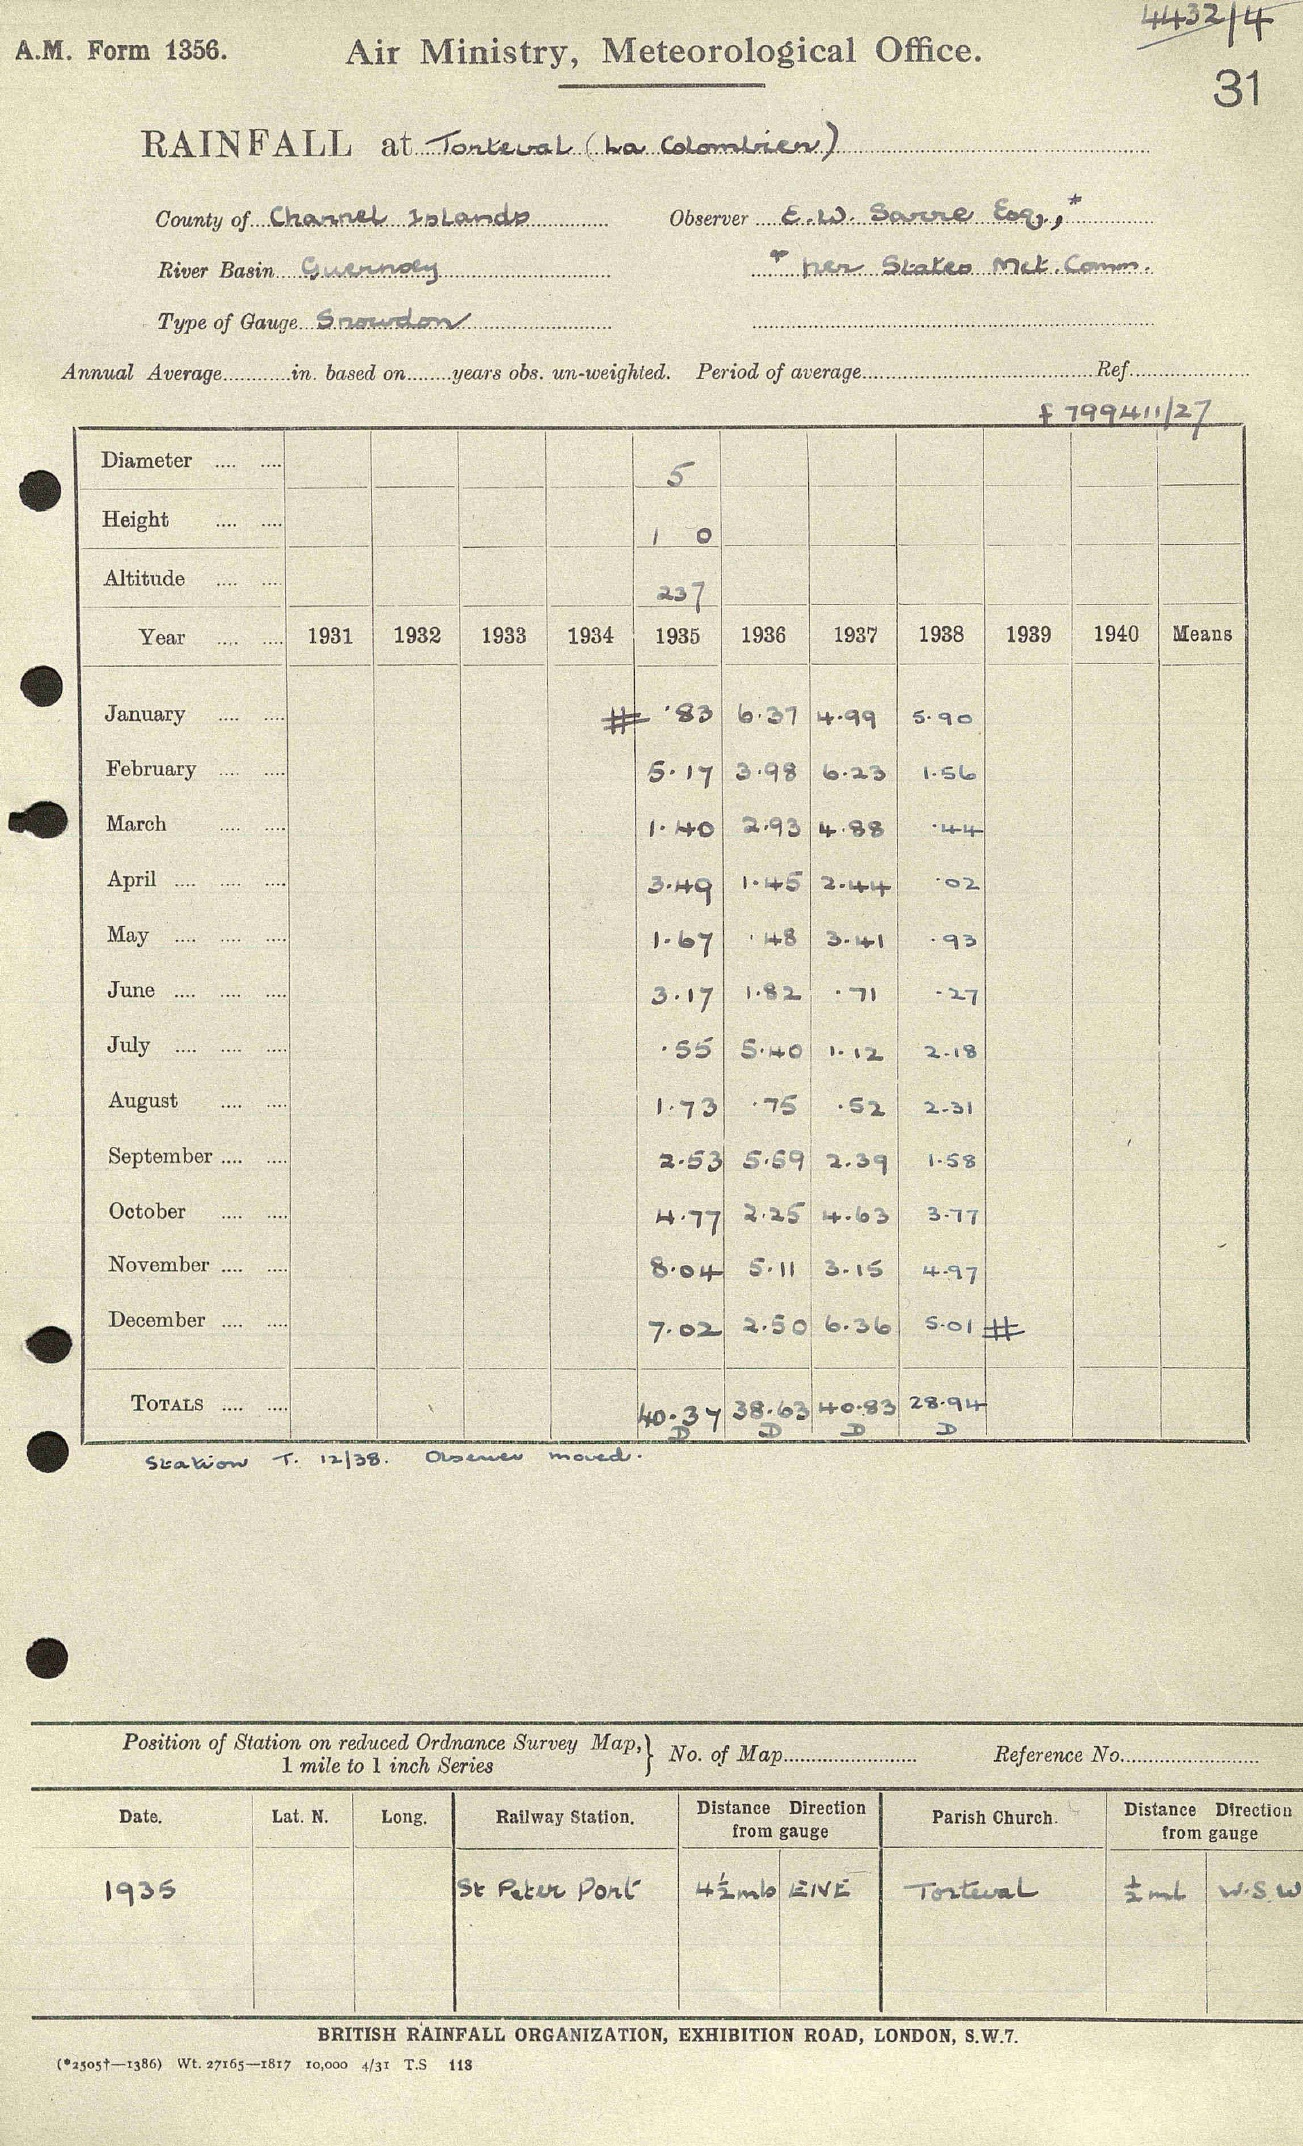 4432/4
A.M. Form 1356. Air Ministry, Meteorological Office.
31
RAINFALL at Torteval (La Colombier)
County of Channel Islands Observer E.W. Sarre Esq., *
River Basin Guernsey * per States Met. Comm.
Type of Gauge Snowdon
Annual Average............in. based on........years obs. un-weighted. Period of average............ Ref............
£ 799411/27
Diameter .... .... 5
Height .... .... 1 0
Altitude .... .... 237
Year .... .... 1931 1932 1933 1934 1935 1936 1937 1938 1939 1940 Means
January .... .... # ·83 6·37 4·99 5·90
February .... .... 5·17 3·98 6·23 1·56
March .... .... 1·40 2·93 4·88 ·44
April .... .... .... 3·49 1·45 2·44 ·02
May .... .... .... 1·67 ·48 3·41 ·93
June .... .... .... 3·17 1·82 ·71 ·27
July .... .... .... ·55 5·40 1·12 2·18
August .... .... 1·73 ·75 ·52 2·31
September .... .... 2·53 5·59 2·39 1·58
October .... .... 4·77 2·25 4·63 3·77
November .... .... 8·04 5·11 3·15 4·97
December .... .... 7·02 2·50 6·36 5·01 #
TOTALS .... .... 40·37 38·63 40·83 28·94
D D D D
Station T. 12/38. Observer moved.
Position of Station on reduced Ordnance Survey Map, } No. of Map............ Reference No............
1 mile to 1 inch Series
Date. Lat. N. Long. Railway Station. Distance Direction from gauge Parish Church. Distance Direction from gauge
1935 St Peter Port 4½ mls ENE Torteval ½ ml W.S.W
BRITISH RAINFALL ORGANIZATION, EXHIBITION ROAD, LONDON, S.W.7.
(*2505†—1386) Wt. 27165—1817 10,000 4/31 T.S 118